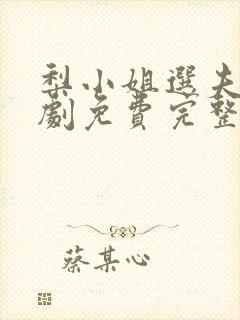 梨小姐選夫
劇免費完整
蔡某心